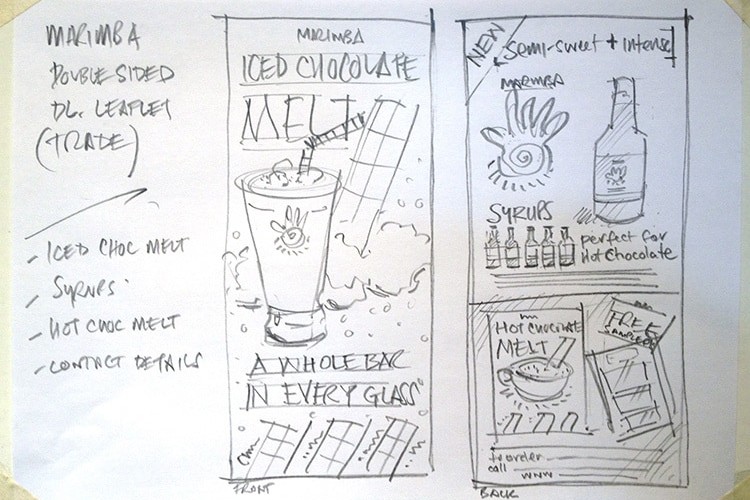 MARIMBA
DOUBLE SIDED
DL. LEAFLET
(TRADE)
- ICED CHOC MELT
- SYRUPS
- HOT CHOC MELT
- CONTACT DETAILS
MARIMBA
ICED CHOCOLATE
MELT
A WHOLE BAR
IN EVERY GLASS"
FRONT
NEW
SEMI-SWEET + INTENSE
MARIMBA
SYRUPS
perfect for
Hot Chocolate
HOT CHOCOLATE
MELT
FREE
to order
call
www
BACK